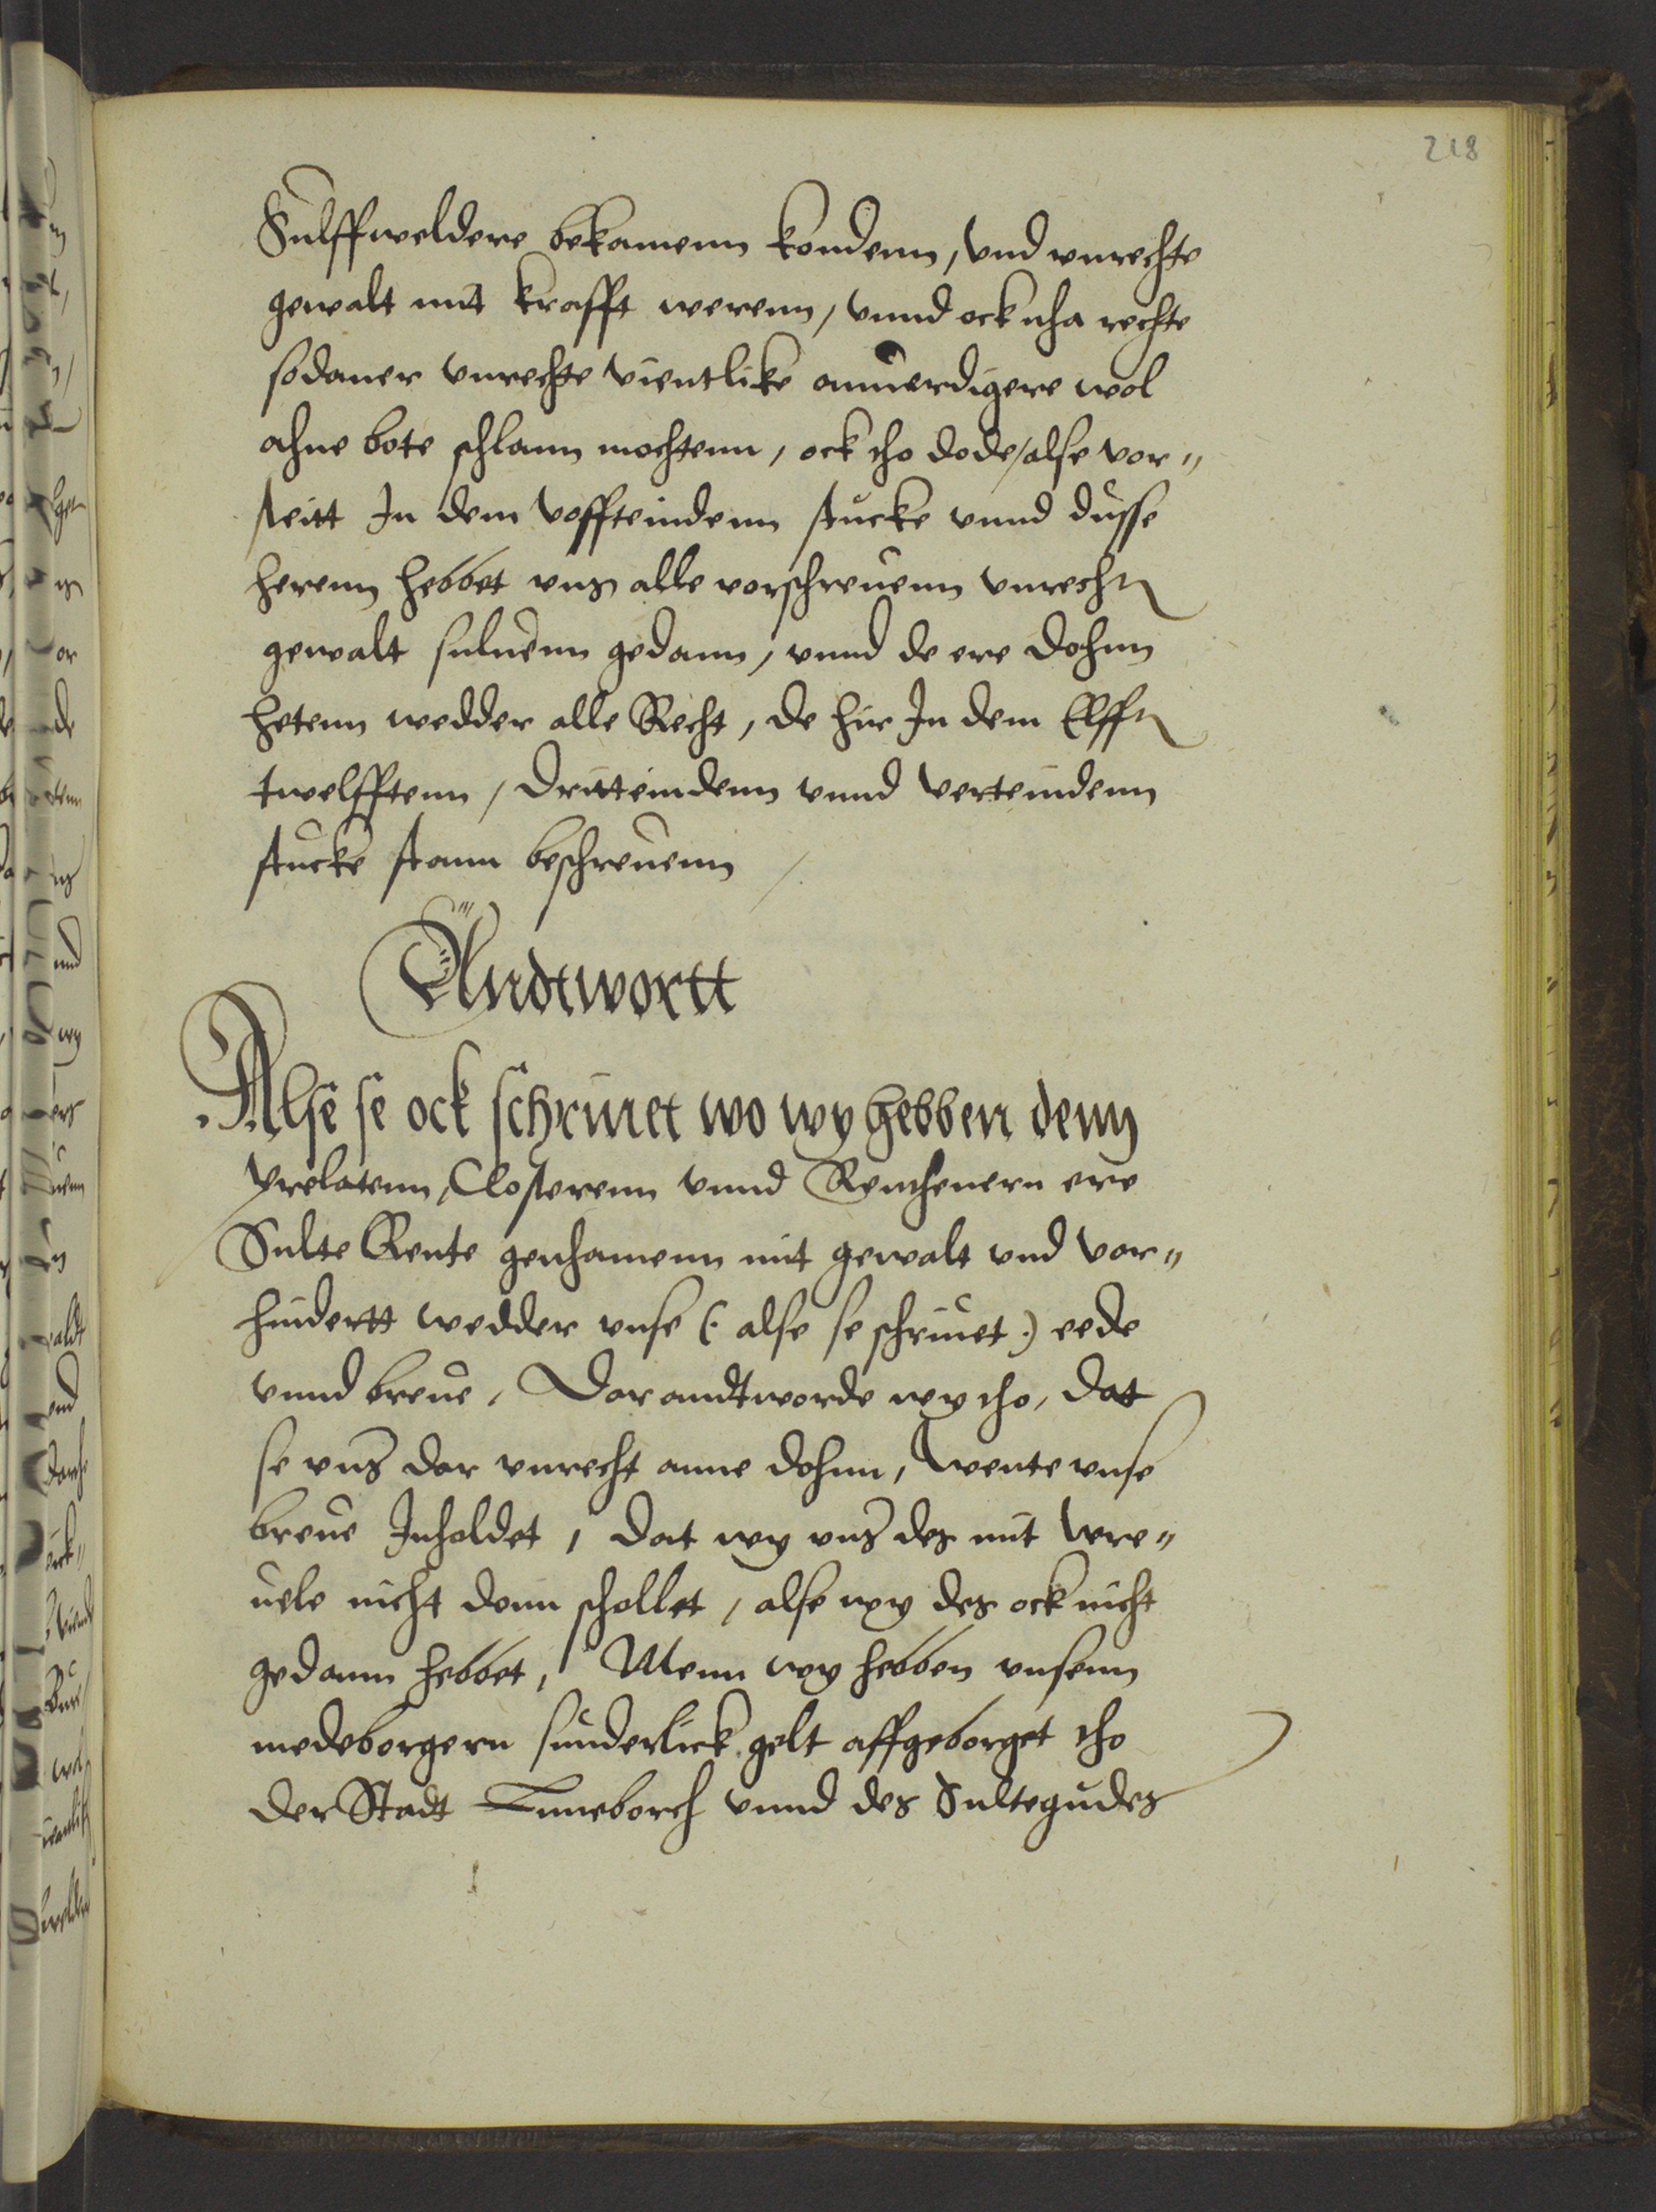 218
Sulffweldere bekamenn kondenn, vnd vnrechte
gewalt mit krafft werenn, vnnd ock nha rechte
sodaner vnrechte vientlike anuerdigere wol
ahne bote schlann mochtenn, ock tho dode / alse vor„
steitt In dem voffteindenn stucke vnnd dusse
herenn hebbet vns alle vorschreuenn vnrechtt
gewalt suluenn gedann, vnnd de ere dohnn
hetenn wedder alle Recht, de hir In dem Elfftn
twelfftenn, Dritteindenn vnnd verteindenn
stucke stann beschreuenn /
Andtwortt
Alse se ock schriuet wo wy hebben denn
Prelatenn, Closterenn vnnd Renthenern ere
Sulte Rente genhamenn mit gewalt vnd vor„
hindertt wedder vnse (: alse se schriuet :) eede
vnnd breue, Dar andtworde wy tho, dat
se vns dar vnrecht anne dohnn, Wente vnse
breue Inholdet, dat wy vns des mit wre„
uele nicht donn schollet, alse wy des ock nicht
gedann hebbet, Menn wy hebben vnsenn
medeborgern sunderlick gelt affgeborget tho
der Stadt Luneborch vnnd des Sultegudes